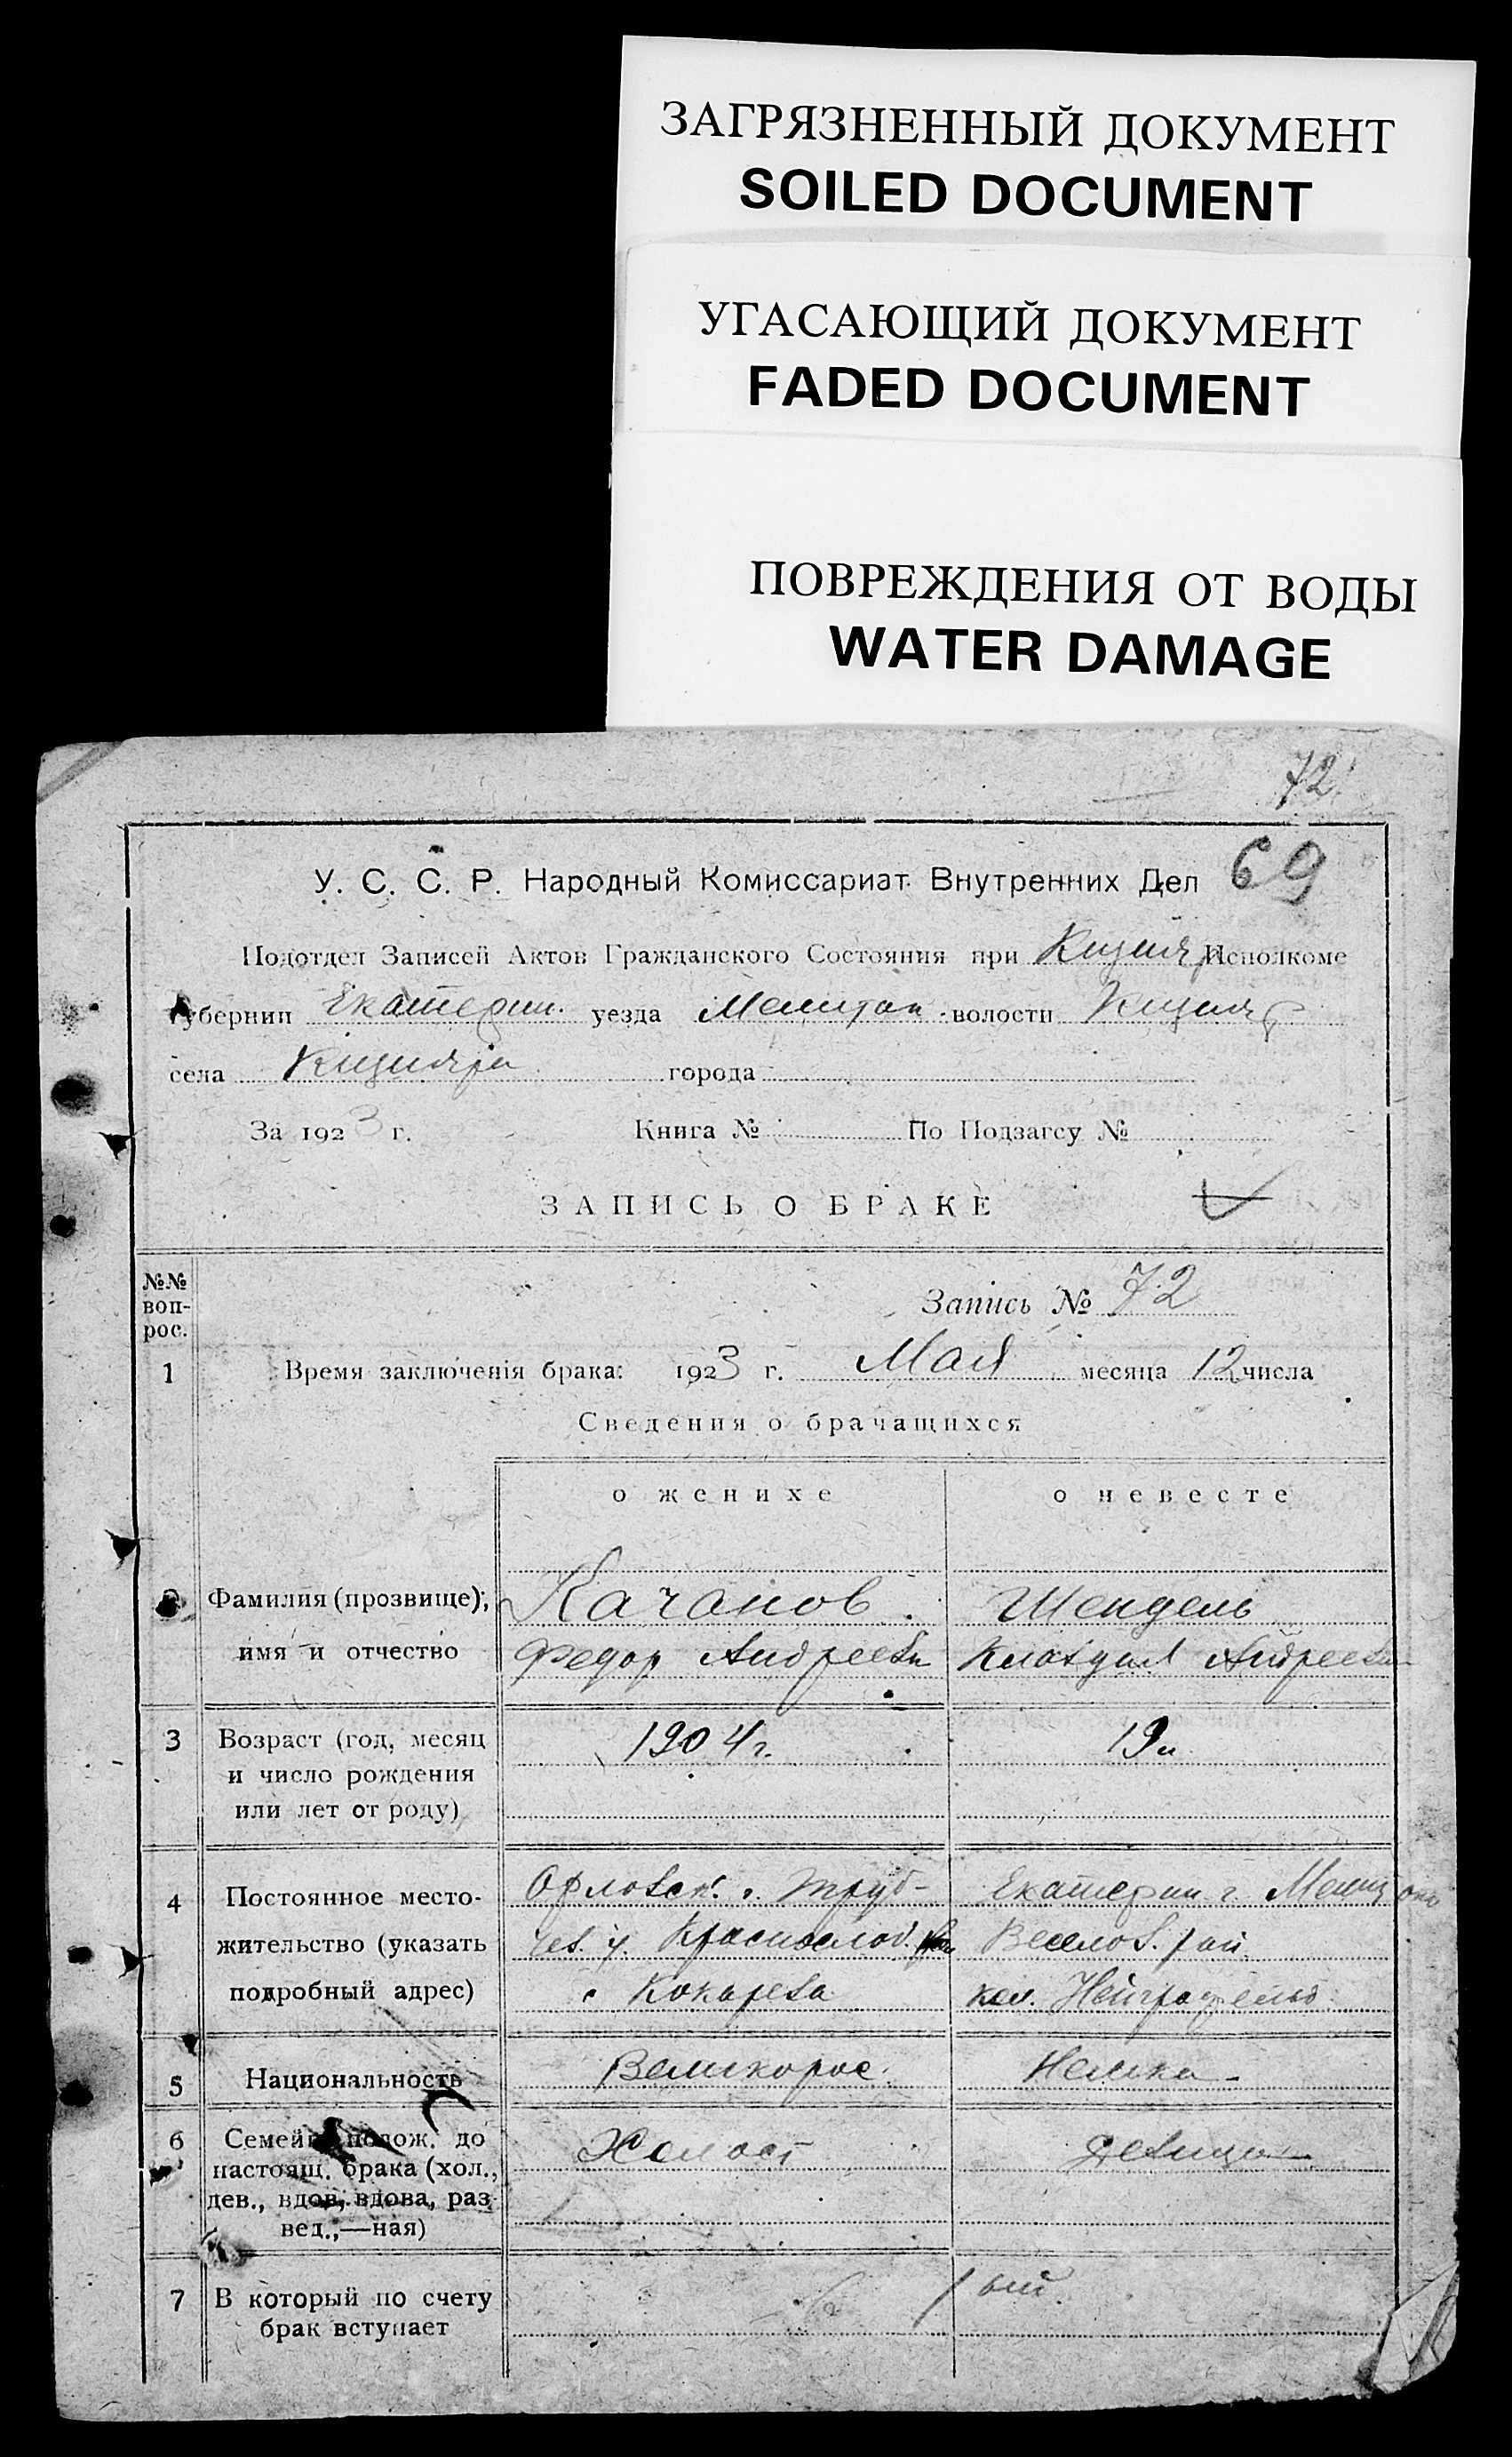 ЗАГРЯЗНЕННЫЙ ДОКУМЕНТ
SOILED DOCUMENT
УГАСАЮЩИЙ ДОКУМЕНТ
FADED DOCUMENT
ПОВРЕЖДЕНИЯ ОТ ВОДЫ
WATER DAMAGE
72
У. С. С. Р. Народный Комиссариат Внутренних Дел 69
Подотдел Записей Актов Гражданского Состояния при Кизияр Исполкоме
Губернии Екатерин. уезда Мелитоп. волости Кизияр
села Кизияра города
За 1923 г. Книга № По Подзагсу №
ЗАПИСЬ О БРАКЕ
№№ воп-
рос.
Запись № 72
1 Время заключенія брака: 1923 г. Мая месяца 12 числа
Сведения о брачащихся
о женихе о невесте
2 Фамилия (прозвище), Качанов. Шендель
имя и отчество Федор Андреевич Клавдия Андреевн
3 Возраст (год, месяц 1904 г. 19 л
и число рождения
или лет от роду)
4 Постоянное место- Орловск. г. Труб- Екатерин. г. Мелитоп
жительство (указать чев. у. Краснослоб. Веселов. рай
подробный адрес) с Кокарева кол. Нейграфельд
5 Национальность Великорос. Немка
6 Семейн. полож. до Холост девица
настоящ. брака (хол.,
дев., вдов, вдова, раз-
вед.,—ная)
7 В который по счету 1 ый
брак вступает